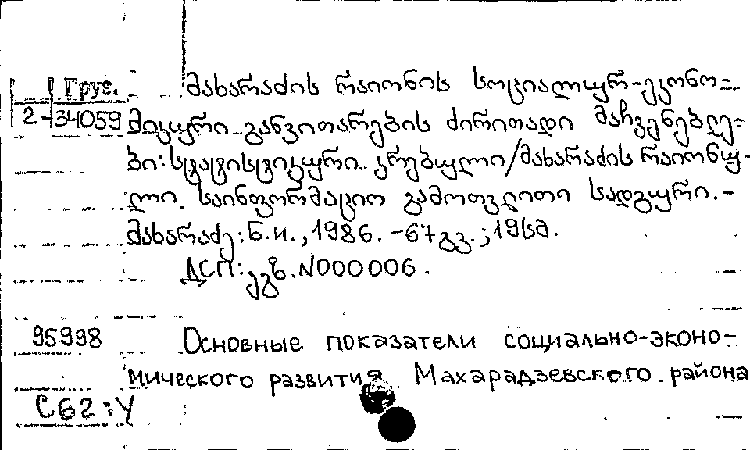 Груз. მახარაძის რაიონის სოციალურ-ეკონო-
2-34059 მიკური განვითარების ძირითადი მაჩვენებლე-
ბი: სტატისტიკური კრებული/მახარაძის რაიონუ-
ლი საინფორმაციო გამოთვლითი სადგური.-
მახარაძე: Б.и., 1986. -67 გვ.; 19სმ.
ДСП: ეგზ. N000006.
95998 Основные показатели социально-эконо-
мического развития Махарадзевского района
С62:У